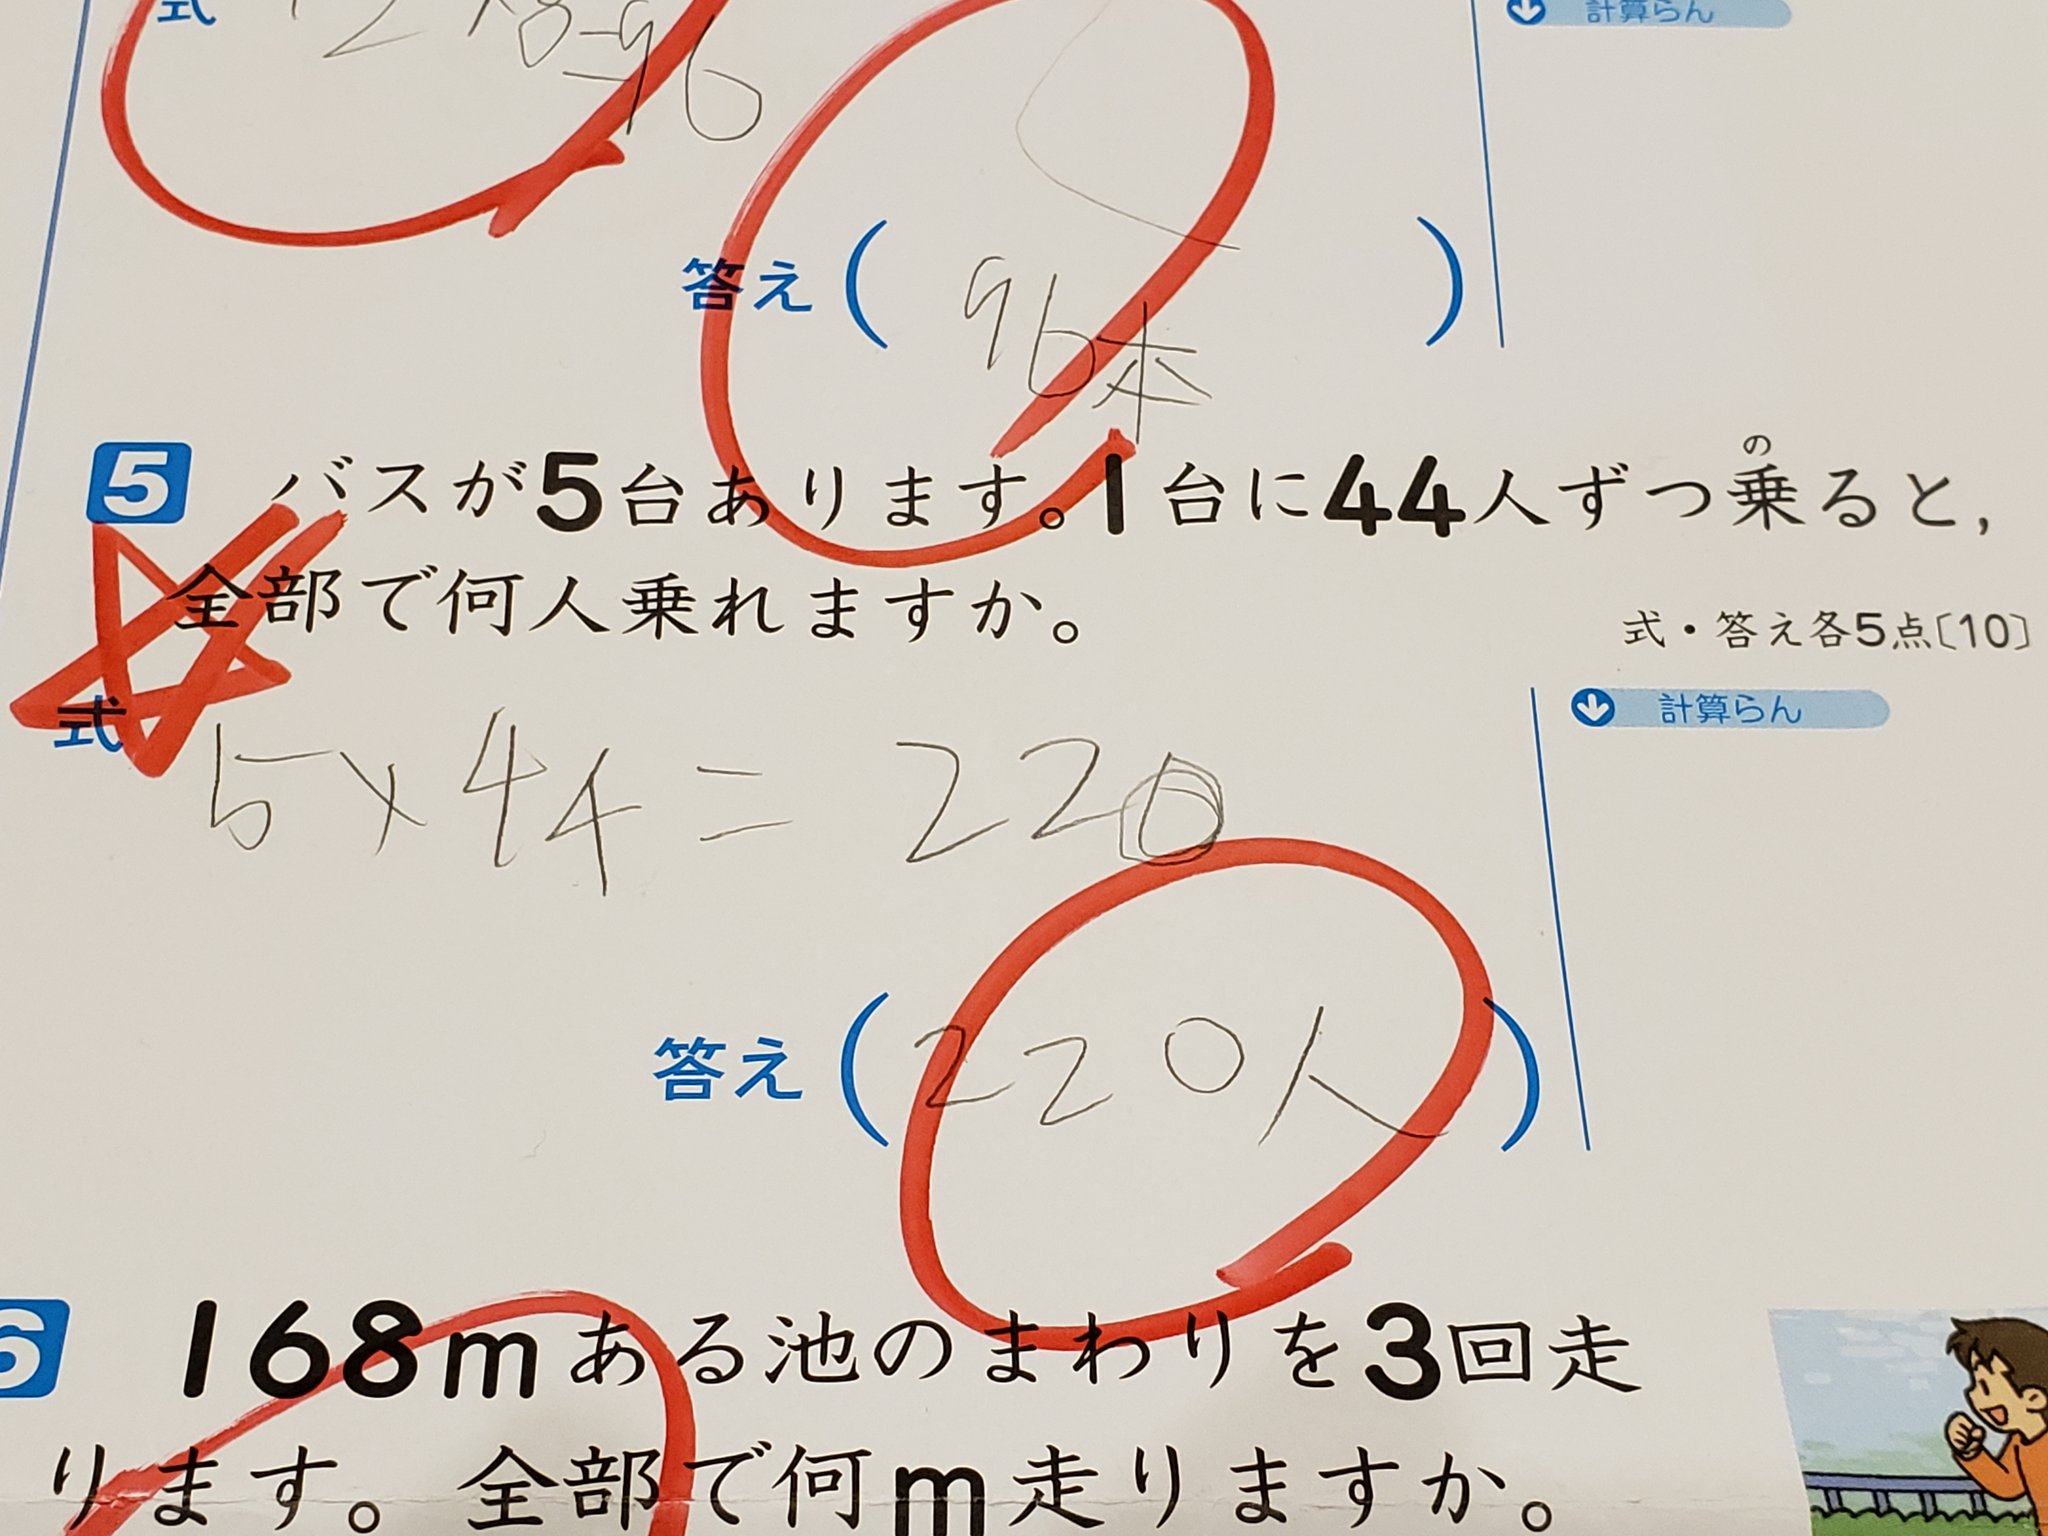 式 12×8=96
計算らん
答え( 96本 )
5 バスが5台あります。1台に44人ずつ乗ると,
の
全部で何人乗れますか。
式・答え各5点〔10〕
計算らん
式 5×44=220
答え( 220人 )
6 168mある池のまわりを3回走
ります。全部で何m走りますか。